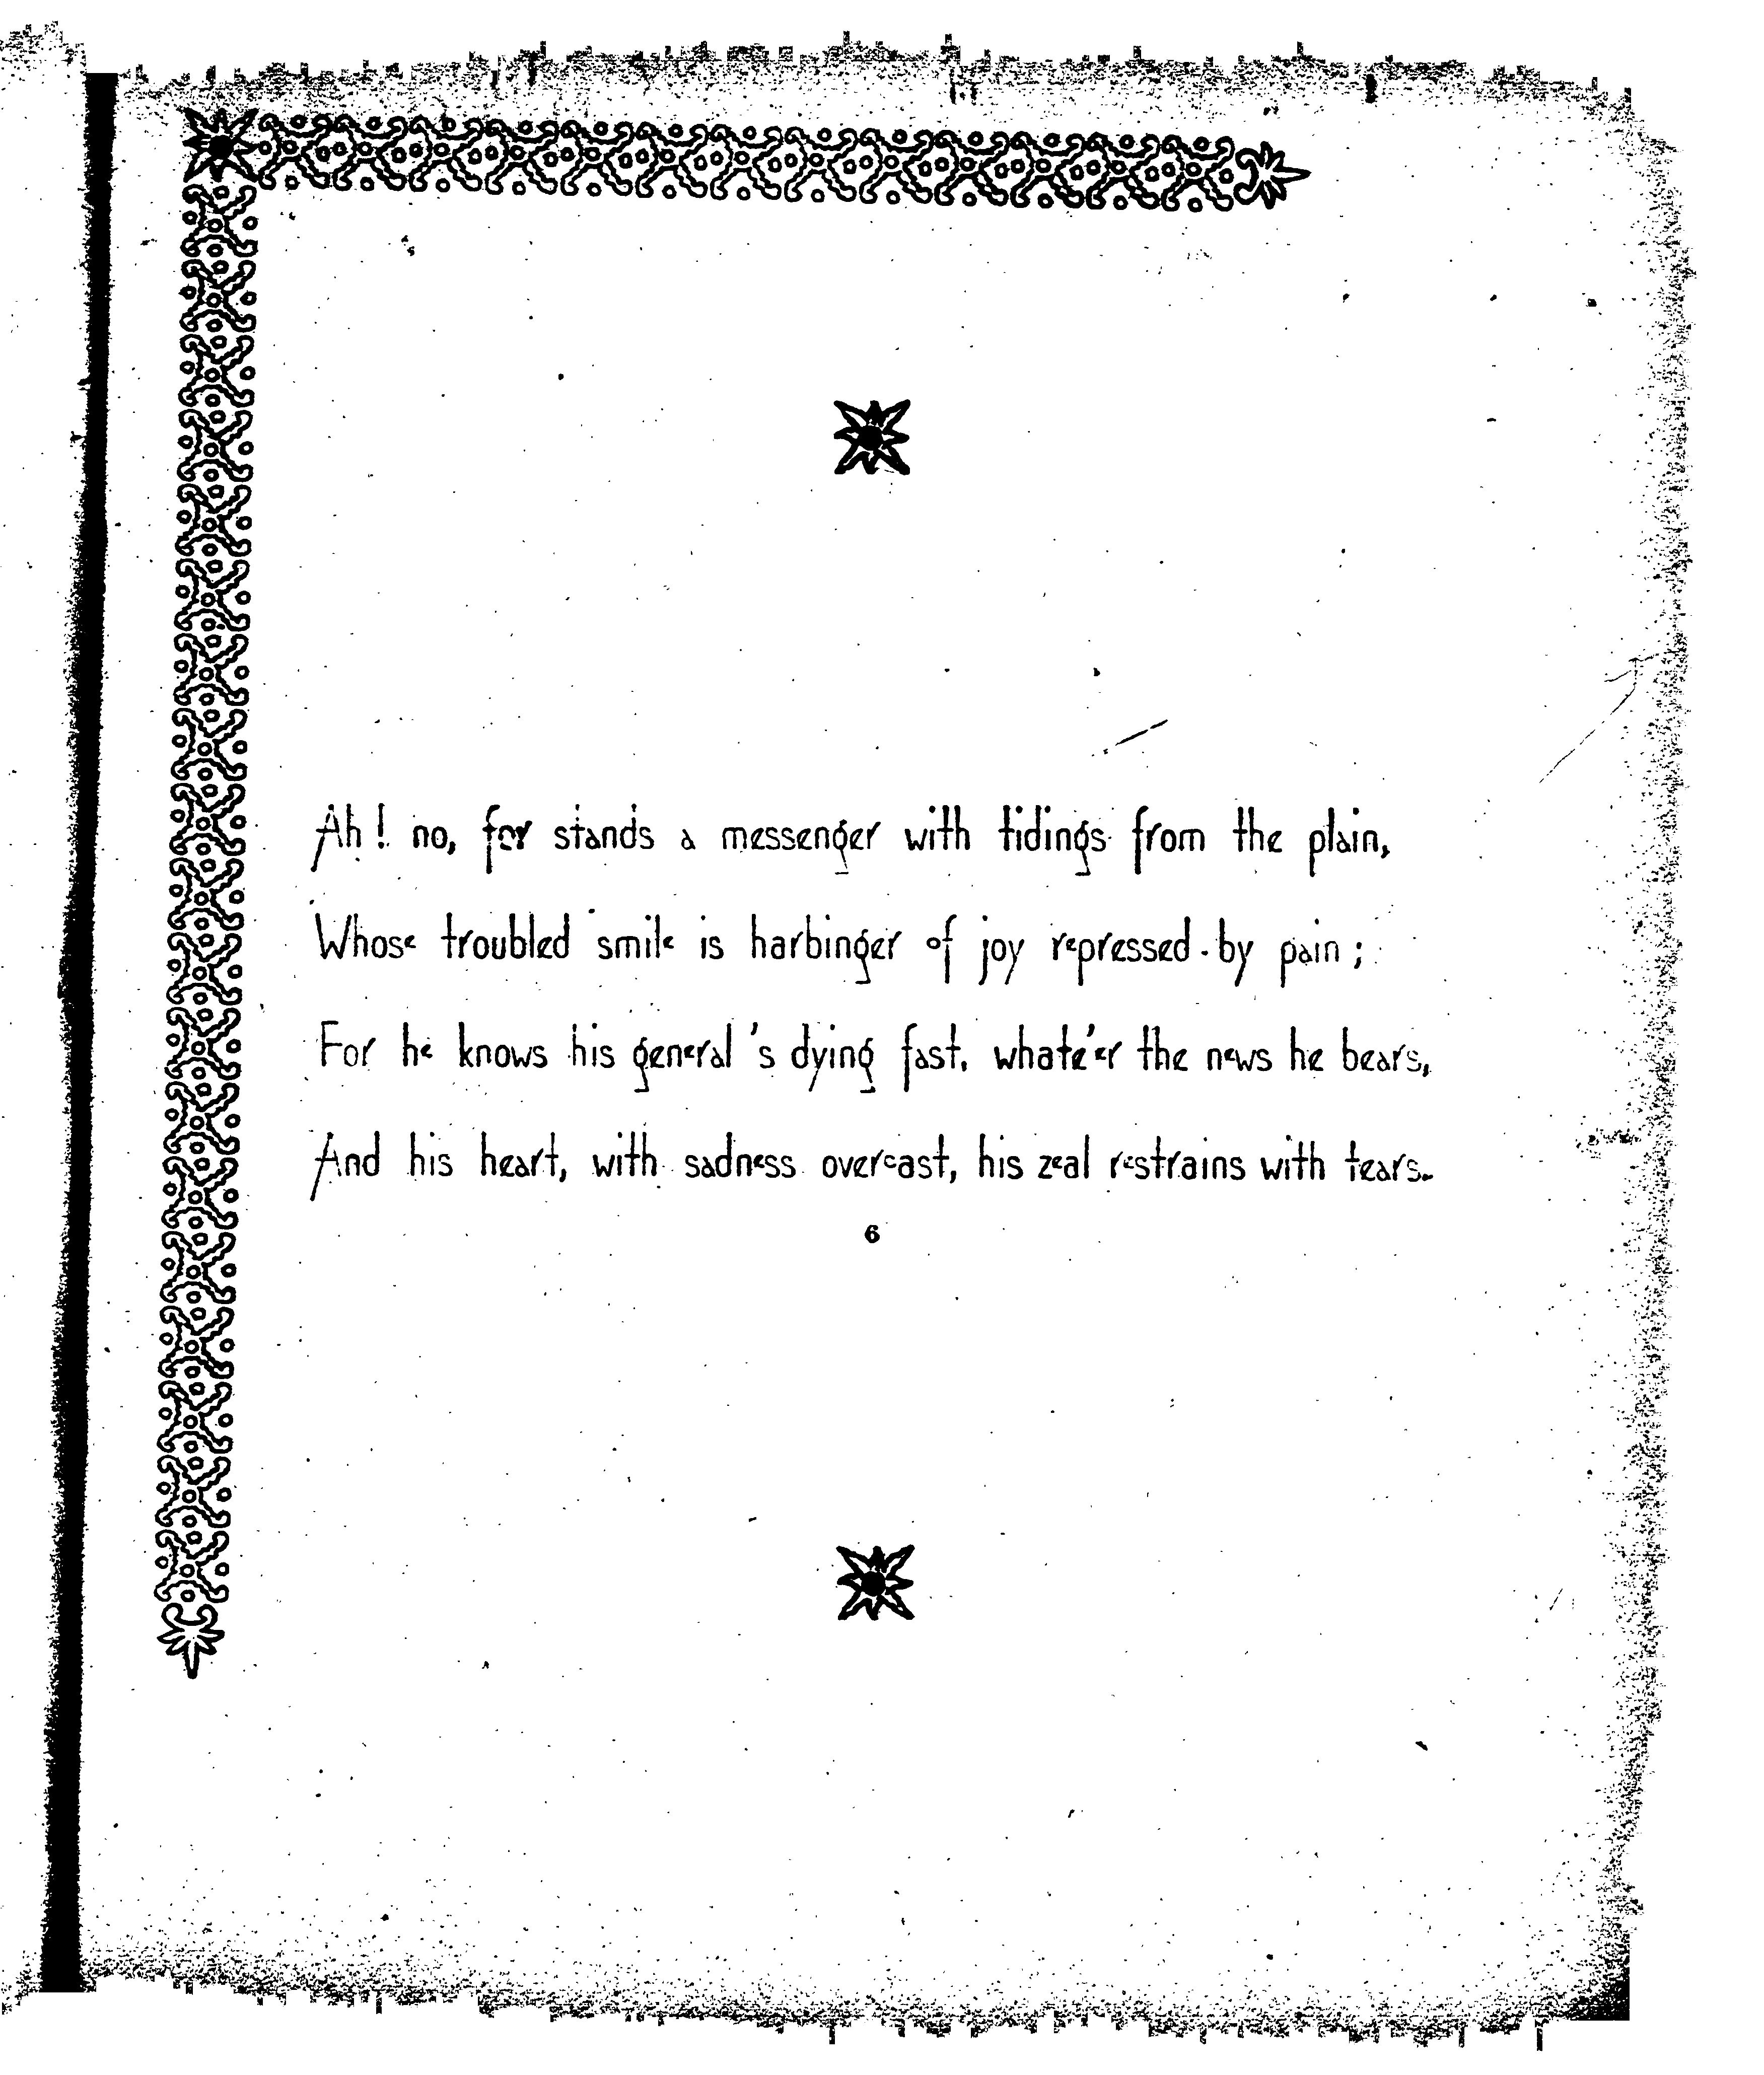 Ah! no, for stands a messenger with tidings from the plain,
Whose troubled smile is harbinger of joy repressed by pain;
For he knows his general's dying fast, whate'er the news he bears,
And his heart, with sadness overcast, his zeal restrains with tears.
6